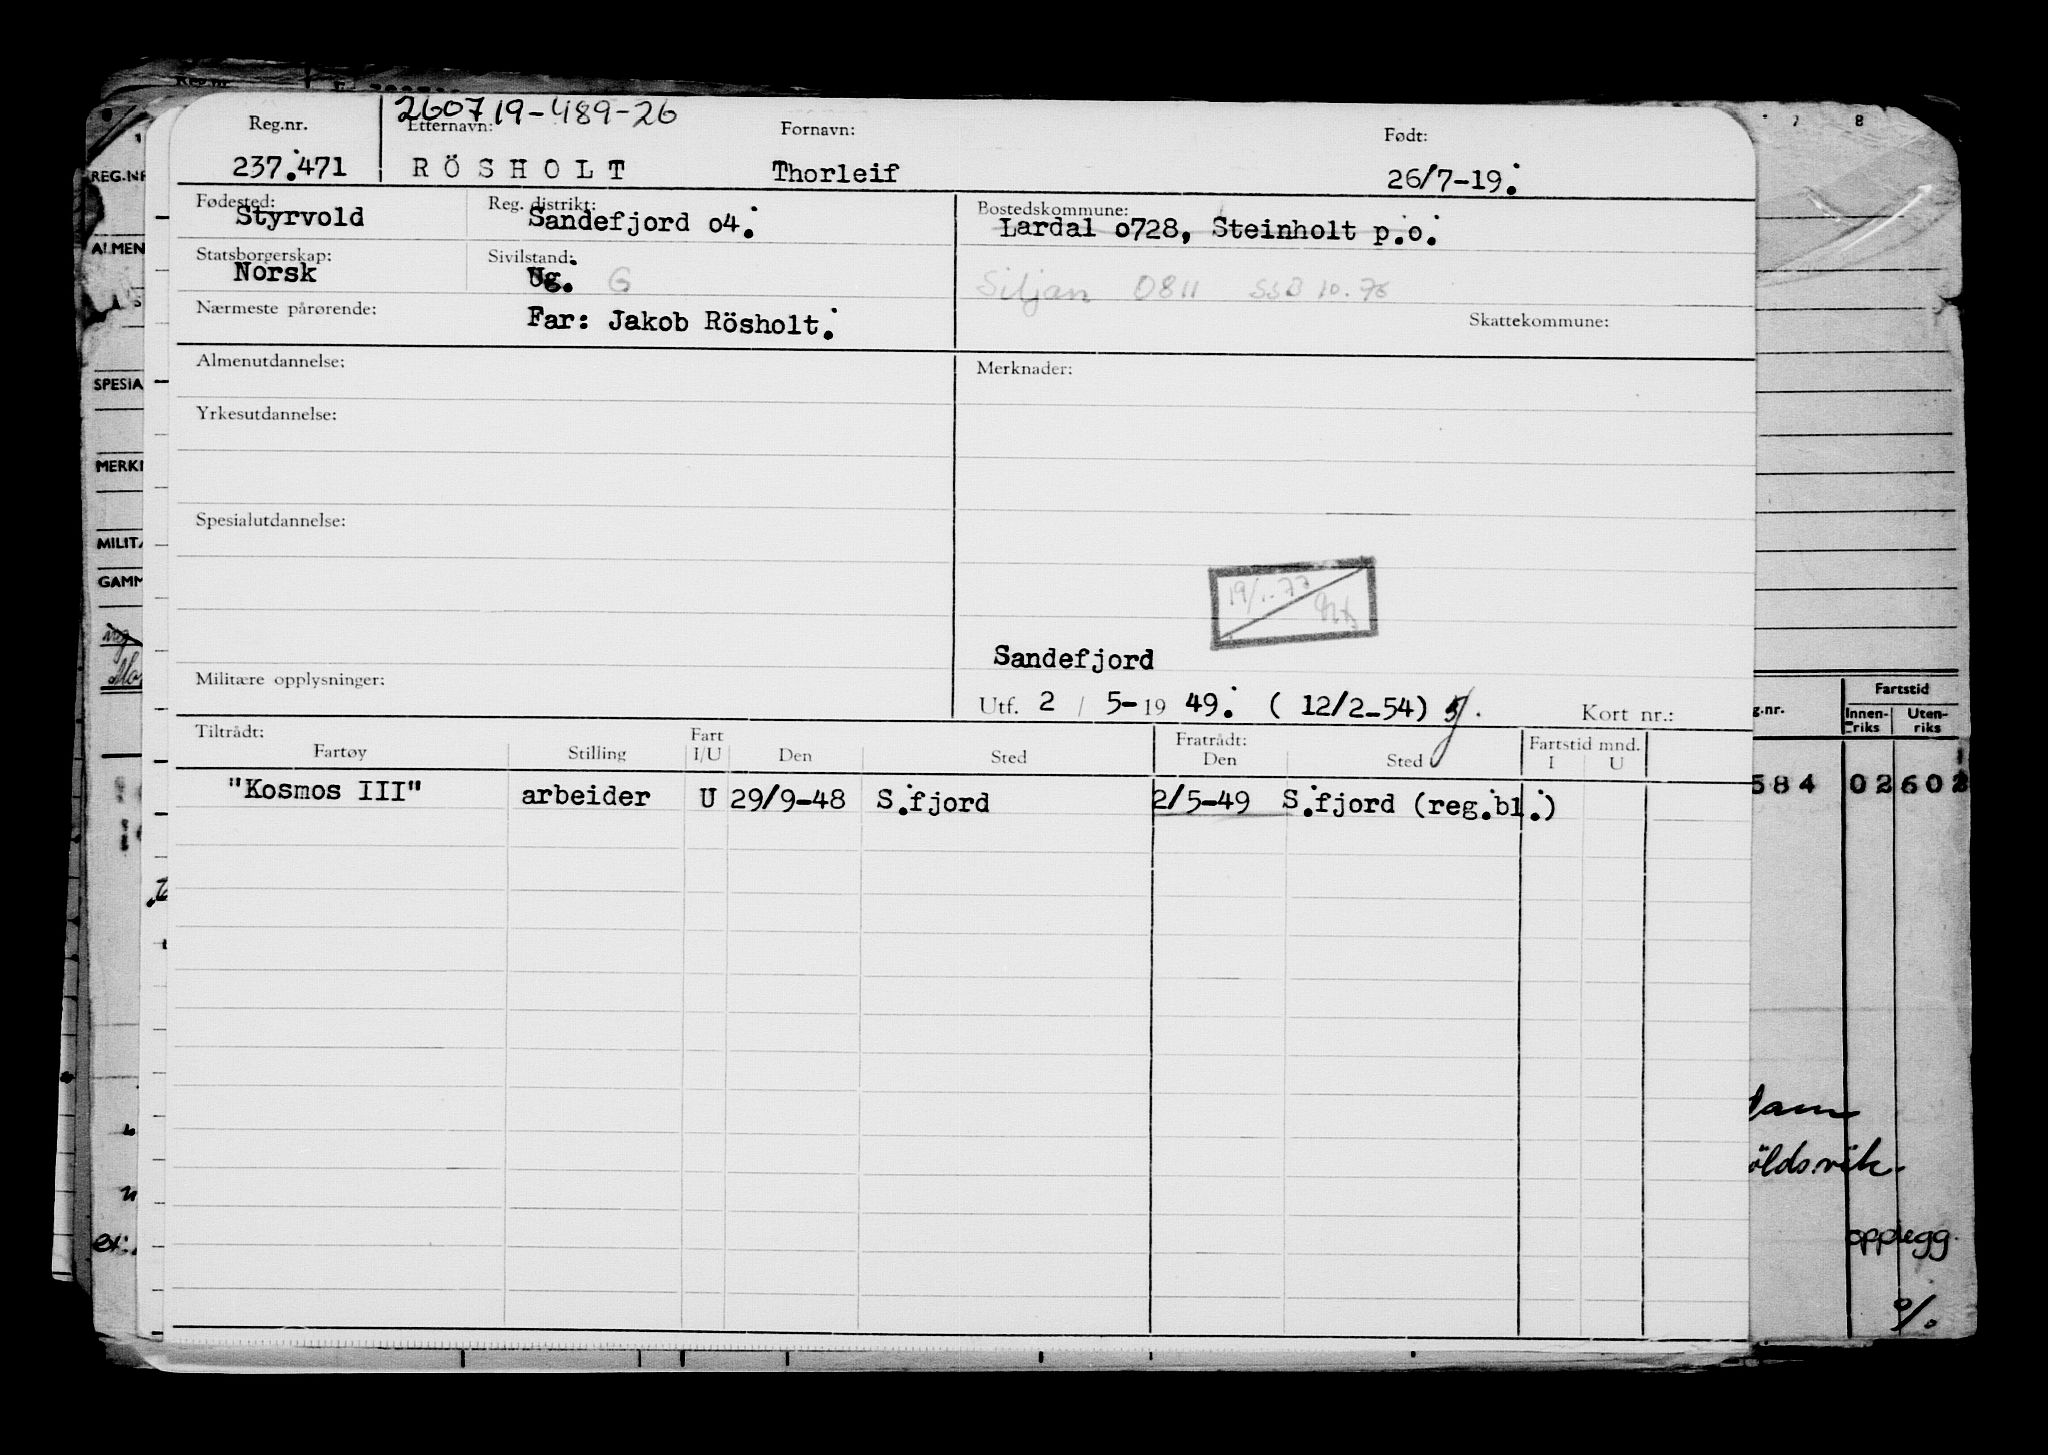 260719-489-26
Reg.nr. Etternavn: Fornavn: Født:
237.471 RÖSHOLT Thorleif 26/7-19.
Fødested: Reg. distrikt: Bostedskommune:
Styrvold Sandefjord o4. Lardal o728, Steinholt p.o.
Statsborgerskap: Sivilstand:
Norsk Ug. G Siljan 0811 SSB 10.76
Nærmeste pårørende: Far: Jakob Rösholt. Skattekommune:
Almenutdannelse: Merknader:
Yrkesutdannelse:
Spesialutdannelse:
19/1-77
Sandefjord
Militære opplysninger:
Utf. 2 / 5-19 49. ( 12/2-54) Kort nr.:
Tiltrådt: Fart Fratrådt: Fartstid mnd.
Fartøy Stilling I/U Den Sted Den Sted I U
"Kosmos III" arbeider U 29/9-48 S.fjord 2/5-49 S.fjord (reg.bl.)
REG.NR
ALMEN
SPESIA
MERK
MILIT
GAMM
7 8
Fartstid
g.nr. Innenriks Utenriks
584 02 602
öldsvik.
opplegg.
%.